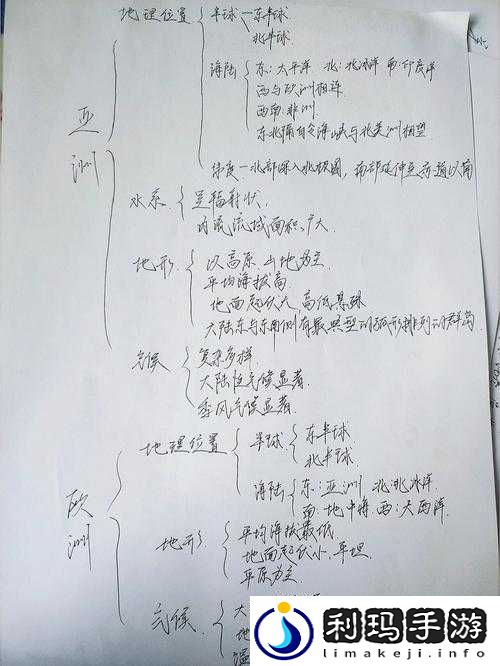 地理位置 半球 东半球
北半球
海陆 东:太平洋 北:北冰洋 南:印度洋
西与欧洲相连
西南:非洲
东北隔白令海峡与北美洲相望
纬度 北部深入北极圈,南部延伸至赤道以南
亚洲
水系 呈辐射状
内流流域面积广大
地形 以高原 山地为主
平均海拔高
地面起伏大 高低悬殊
大陆东与东南侧有最典型的弧形排列的群岛
气候 复杂多样
大陆性气候显著
季风气候显著
欧洲
地理位置 半球 东半球
北半球
海陆 东:亚洲 北:北冰洋
南:地中海 西:大西洋
地形 平均海拔最低
地面起伏小,平坦
平原为主
气候 大
地
温
利玛手游
limakeji.info/